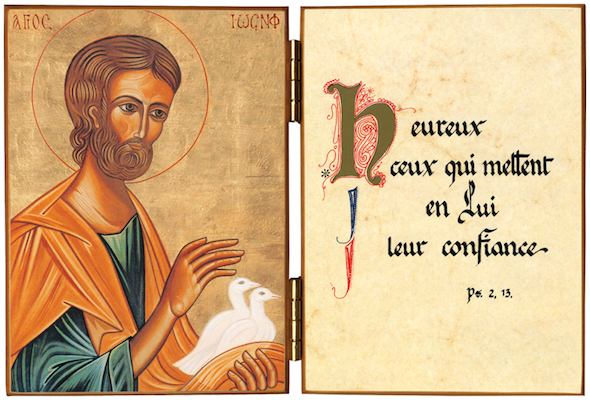 ΑΓΙΟC
ΙΩCΗΦ
heureux
ceux qui mettent
en Lui
leur confiance
Ps. 2, 13.